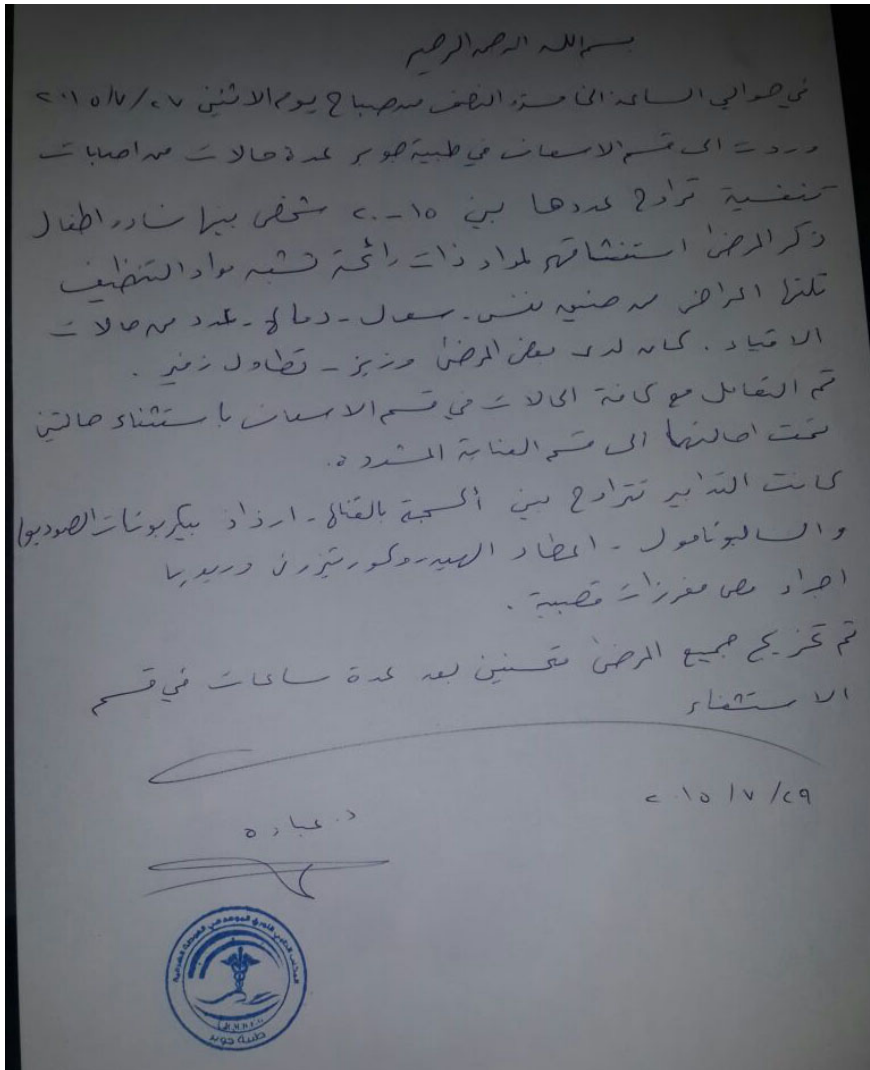 بسم الله الرحمن الرحيم
في حوالي الساعة الخامسة والنصف من صباح يوم الاثنين ٢٠١٥/٧/٢٧
وردت الى قسم الاسعاف في طبية جوبر عدة حالات من اصابات
تنفسية تراوح عددها بين ١٥-٢٠ شخص بينها نساء و اطفال
ذكر المرضى استنشاقهم لمواد ذات رائحة تشبه مواد التنظيف
تلتها اعراض من ضيق تنفس - سعال - دماع - عدد من حالات
الاقياء . كان لدى بعض المرضى وزيز - تطاول زفير .
تم التعامل مع كافة الحالات في قسم الاسعاف باستثناء حالتين
تمت احالتهما الى قسم العناية المشددة .
كانت التدابير تتراوح بين أكسجة بالقناع - ارذاذ بيكربونات الصوديوم
و السالبوتامول - اعطاء الهيدروكورتيزون وريديا
اجراء مص مفرزات قصبية .
تم تخريج جميع المرضى متحسنين بعد عدة ساعات في قسم
الاستشفاء
٢٠١٥/٧/٢٩
د. عباده
المكتب الطبي الثوري الموحد في الغوطة الشرقية
طبية جوبر